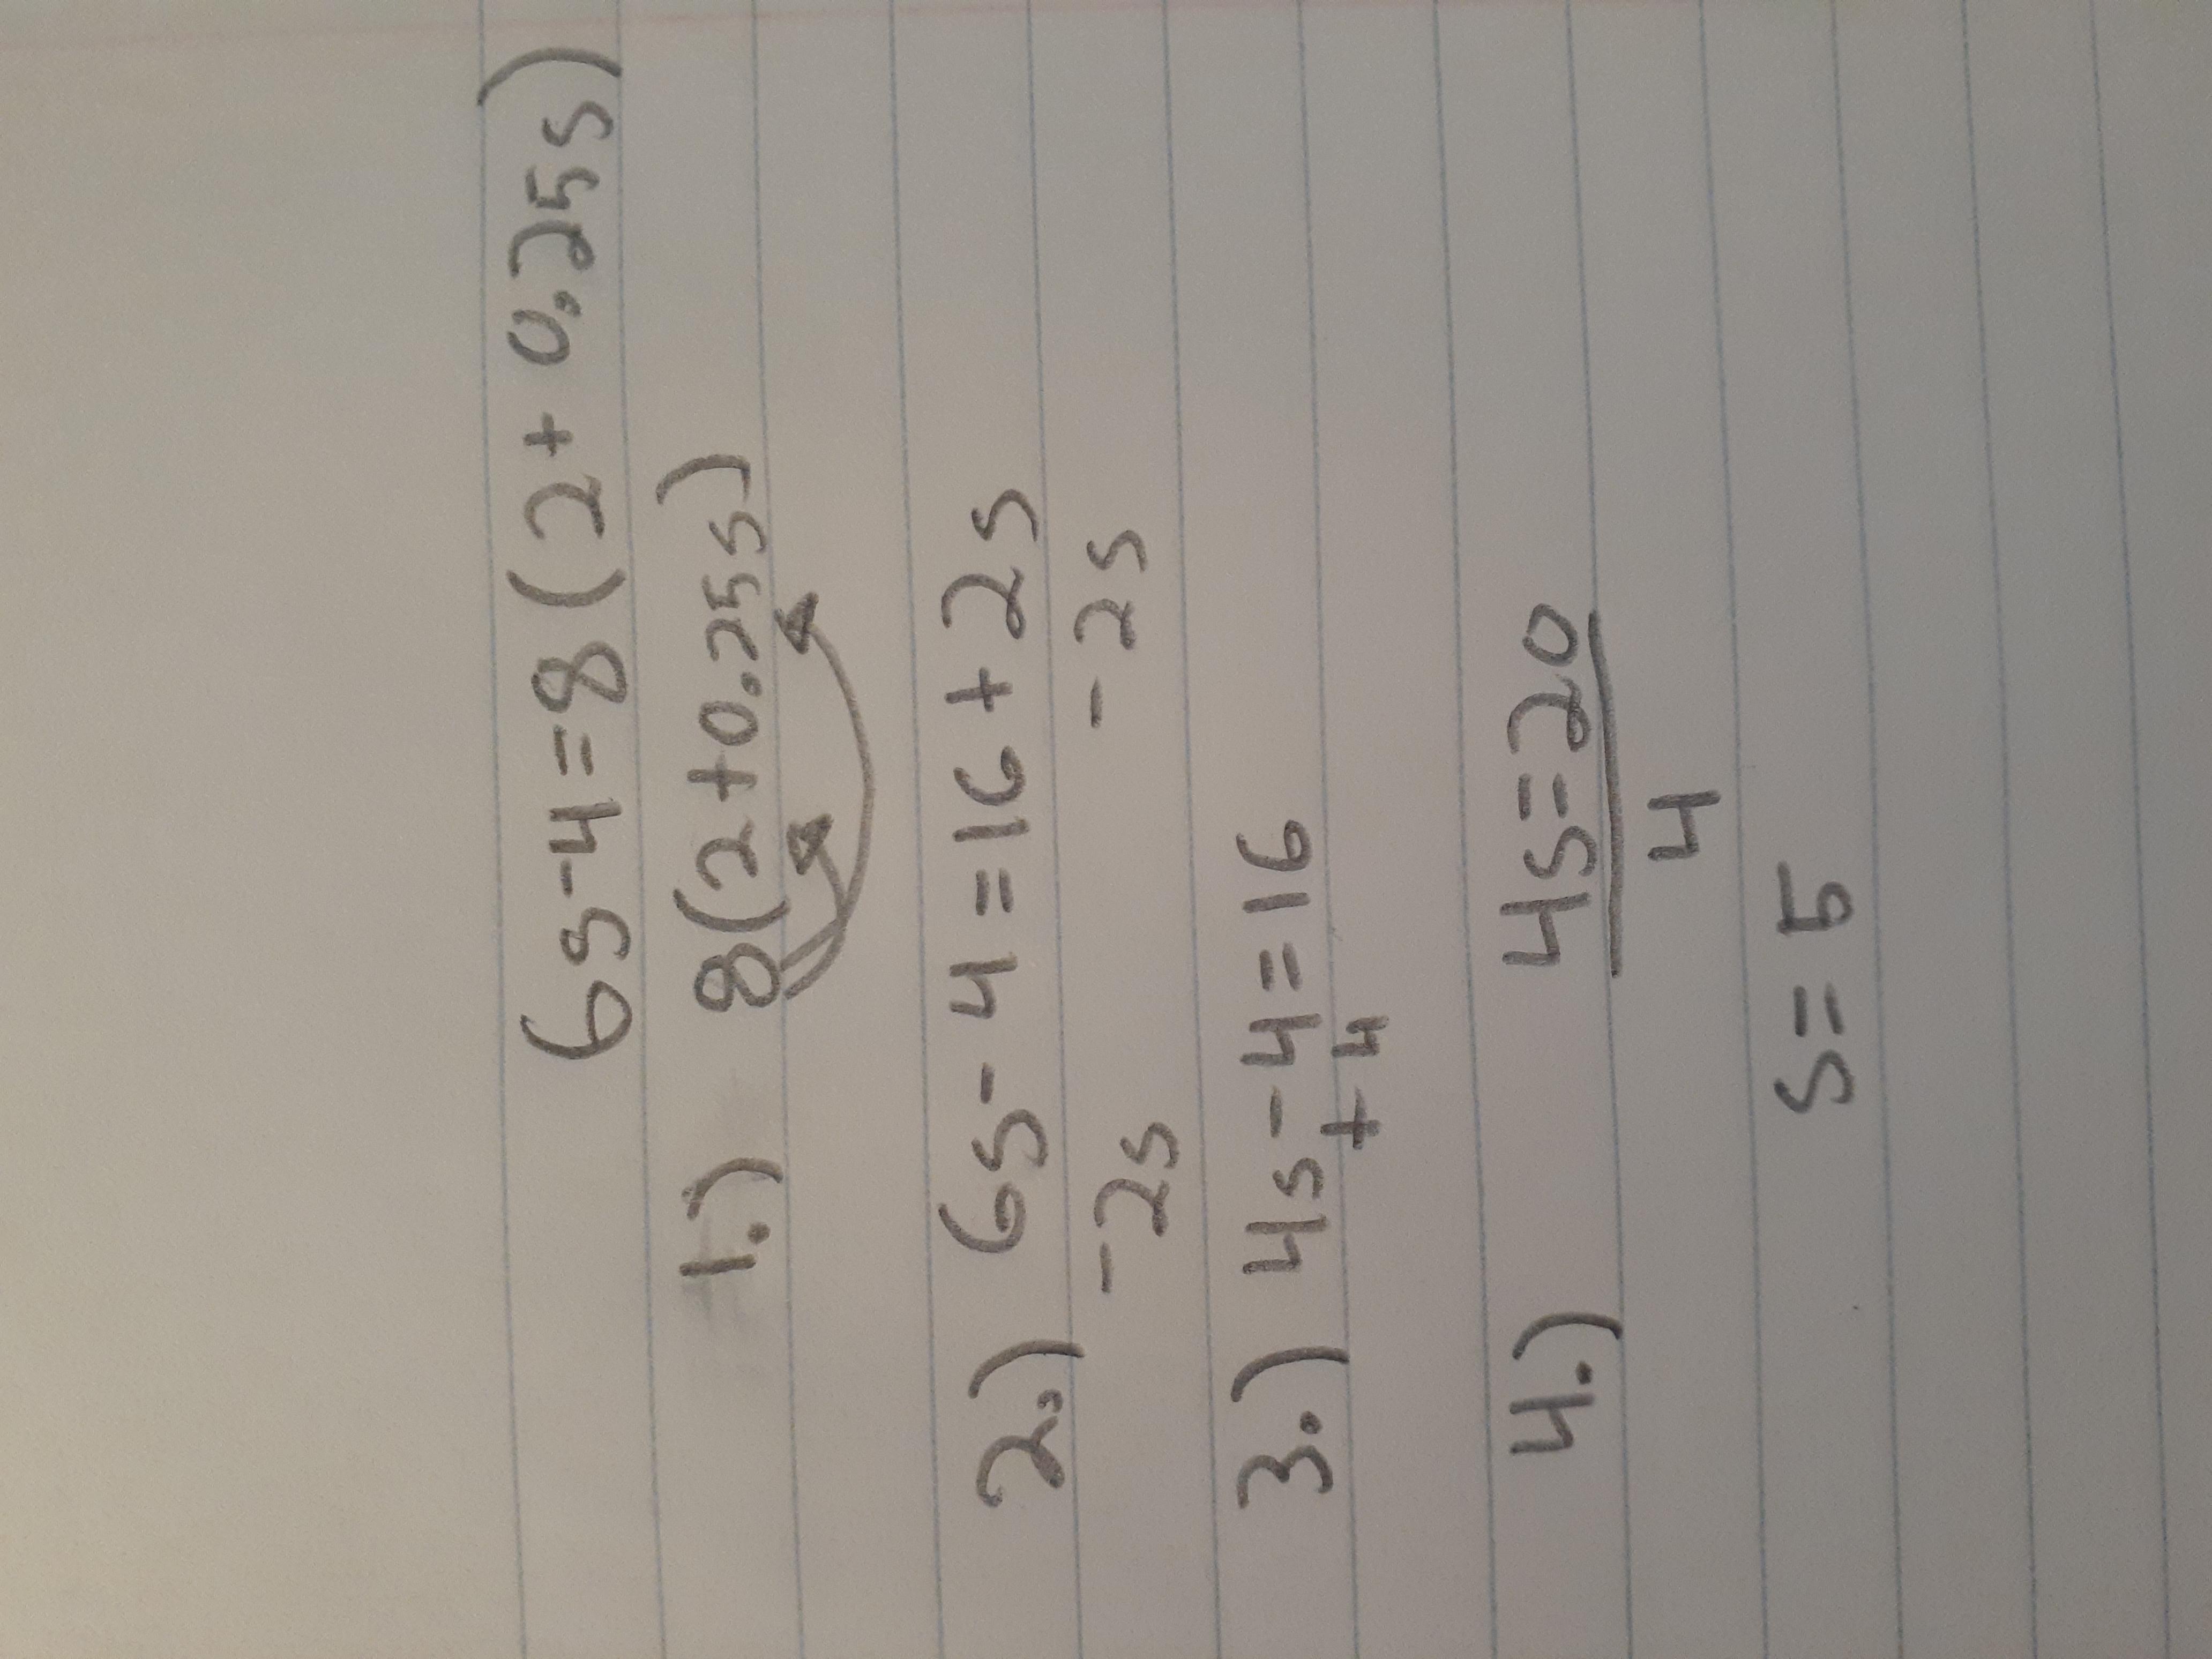 6s-4=8(2+0.25s)
1.) 8(2+0.25s)
2.) 6s-4=16+2s
-2s -2s
3.) 4s-4=16
+4
4.) 4s=20
4
s=5